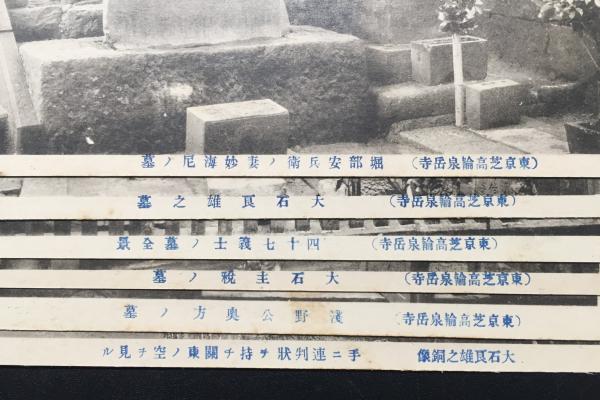 (東京芝高輪泉岳寺) 堀部安兵衛ノ妻妙海尼ノ墓
(東京芝高輪泉岳寺) 大石良雄之墓
(東京芝高輪泉岳寺) 四十七義士ノ墓全景
(東京芝高輪泉岳寺) 大石主税ノ墓
(東京芝高輪泉岳寺) 淺野公奥方ノ墓
大石良雄之銅像 手ニ連判狀ヲ持チ關東ノ空ヲ見ル